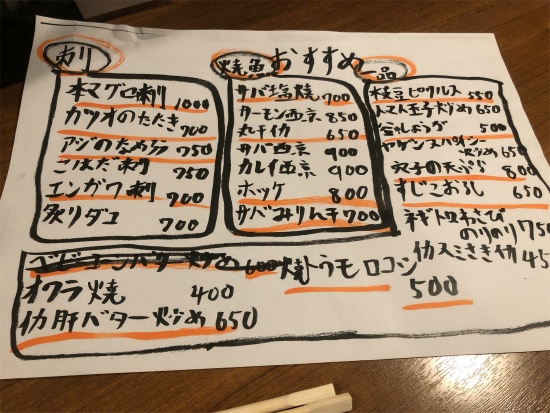 おすすめ
刺
本マグロ刺 1000
カツオのたたき 900
アジのためろう 750
こはだ刺 750
エンガワ刺 900
炙りダコ 700
焼魚
サバ塩焼 700
サーモン西京 850
丸干イカ 650
サバ西京 900
カレイ西京 900
ホッケ 800
サバみりん干 700
一品
枝豆ピクルス 550
トマト玉子炒め 650
谷中しょうが 500
ヤゲンスパイシー
炒め 650
穴子の天ぷら 800
すじこおろし 650
ネギトロわさび
のりのり 750
イカスミさきイカ 45
ベビーコーンバター炒め 600
オクラ焼 400
イカ肝バター炒め 650
焼トウモロコシ
500